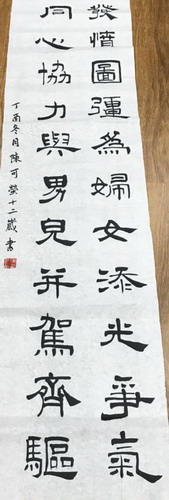 發憤圖彊為婦女添光爭氣
同心協力與男兒并駕齊驅
丁酉冬月陳可榮十二歲書